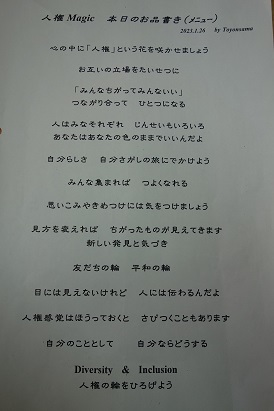 人権 Magic　本日のお品書き（メニュー）
2023.1.26　by Toyonsama
心の中に「人権」という花を咲かせましょう
お互いの立場をたいせつに
「みんなちがってみんないい」
つながり合って　ひとつになる
人はみなそれぞれ　じんせいもいろいろ
あなたはあなたの色のままでいいんだよ
自分らしさ　自分さがしの旅にでかけよう
みんな集まれば　つよくなれる
思いこみやきめつけには気をつけましょう
見方を変えれば　ちがったものが見えてきます
新しい発見と気づき
友だちの輪　平和の輪
目には見えないけれど　人には伝わるんだよ
人権感覚はほうっておくと　さびつくこともあります
自分のこととして　自分ならどうする
Diversity　&　Inclusion
人権の輪をひろげよう